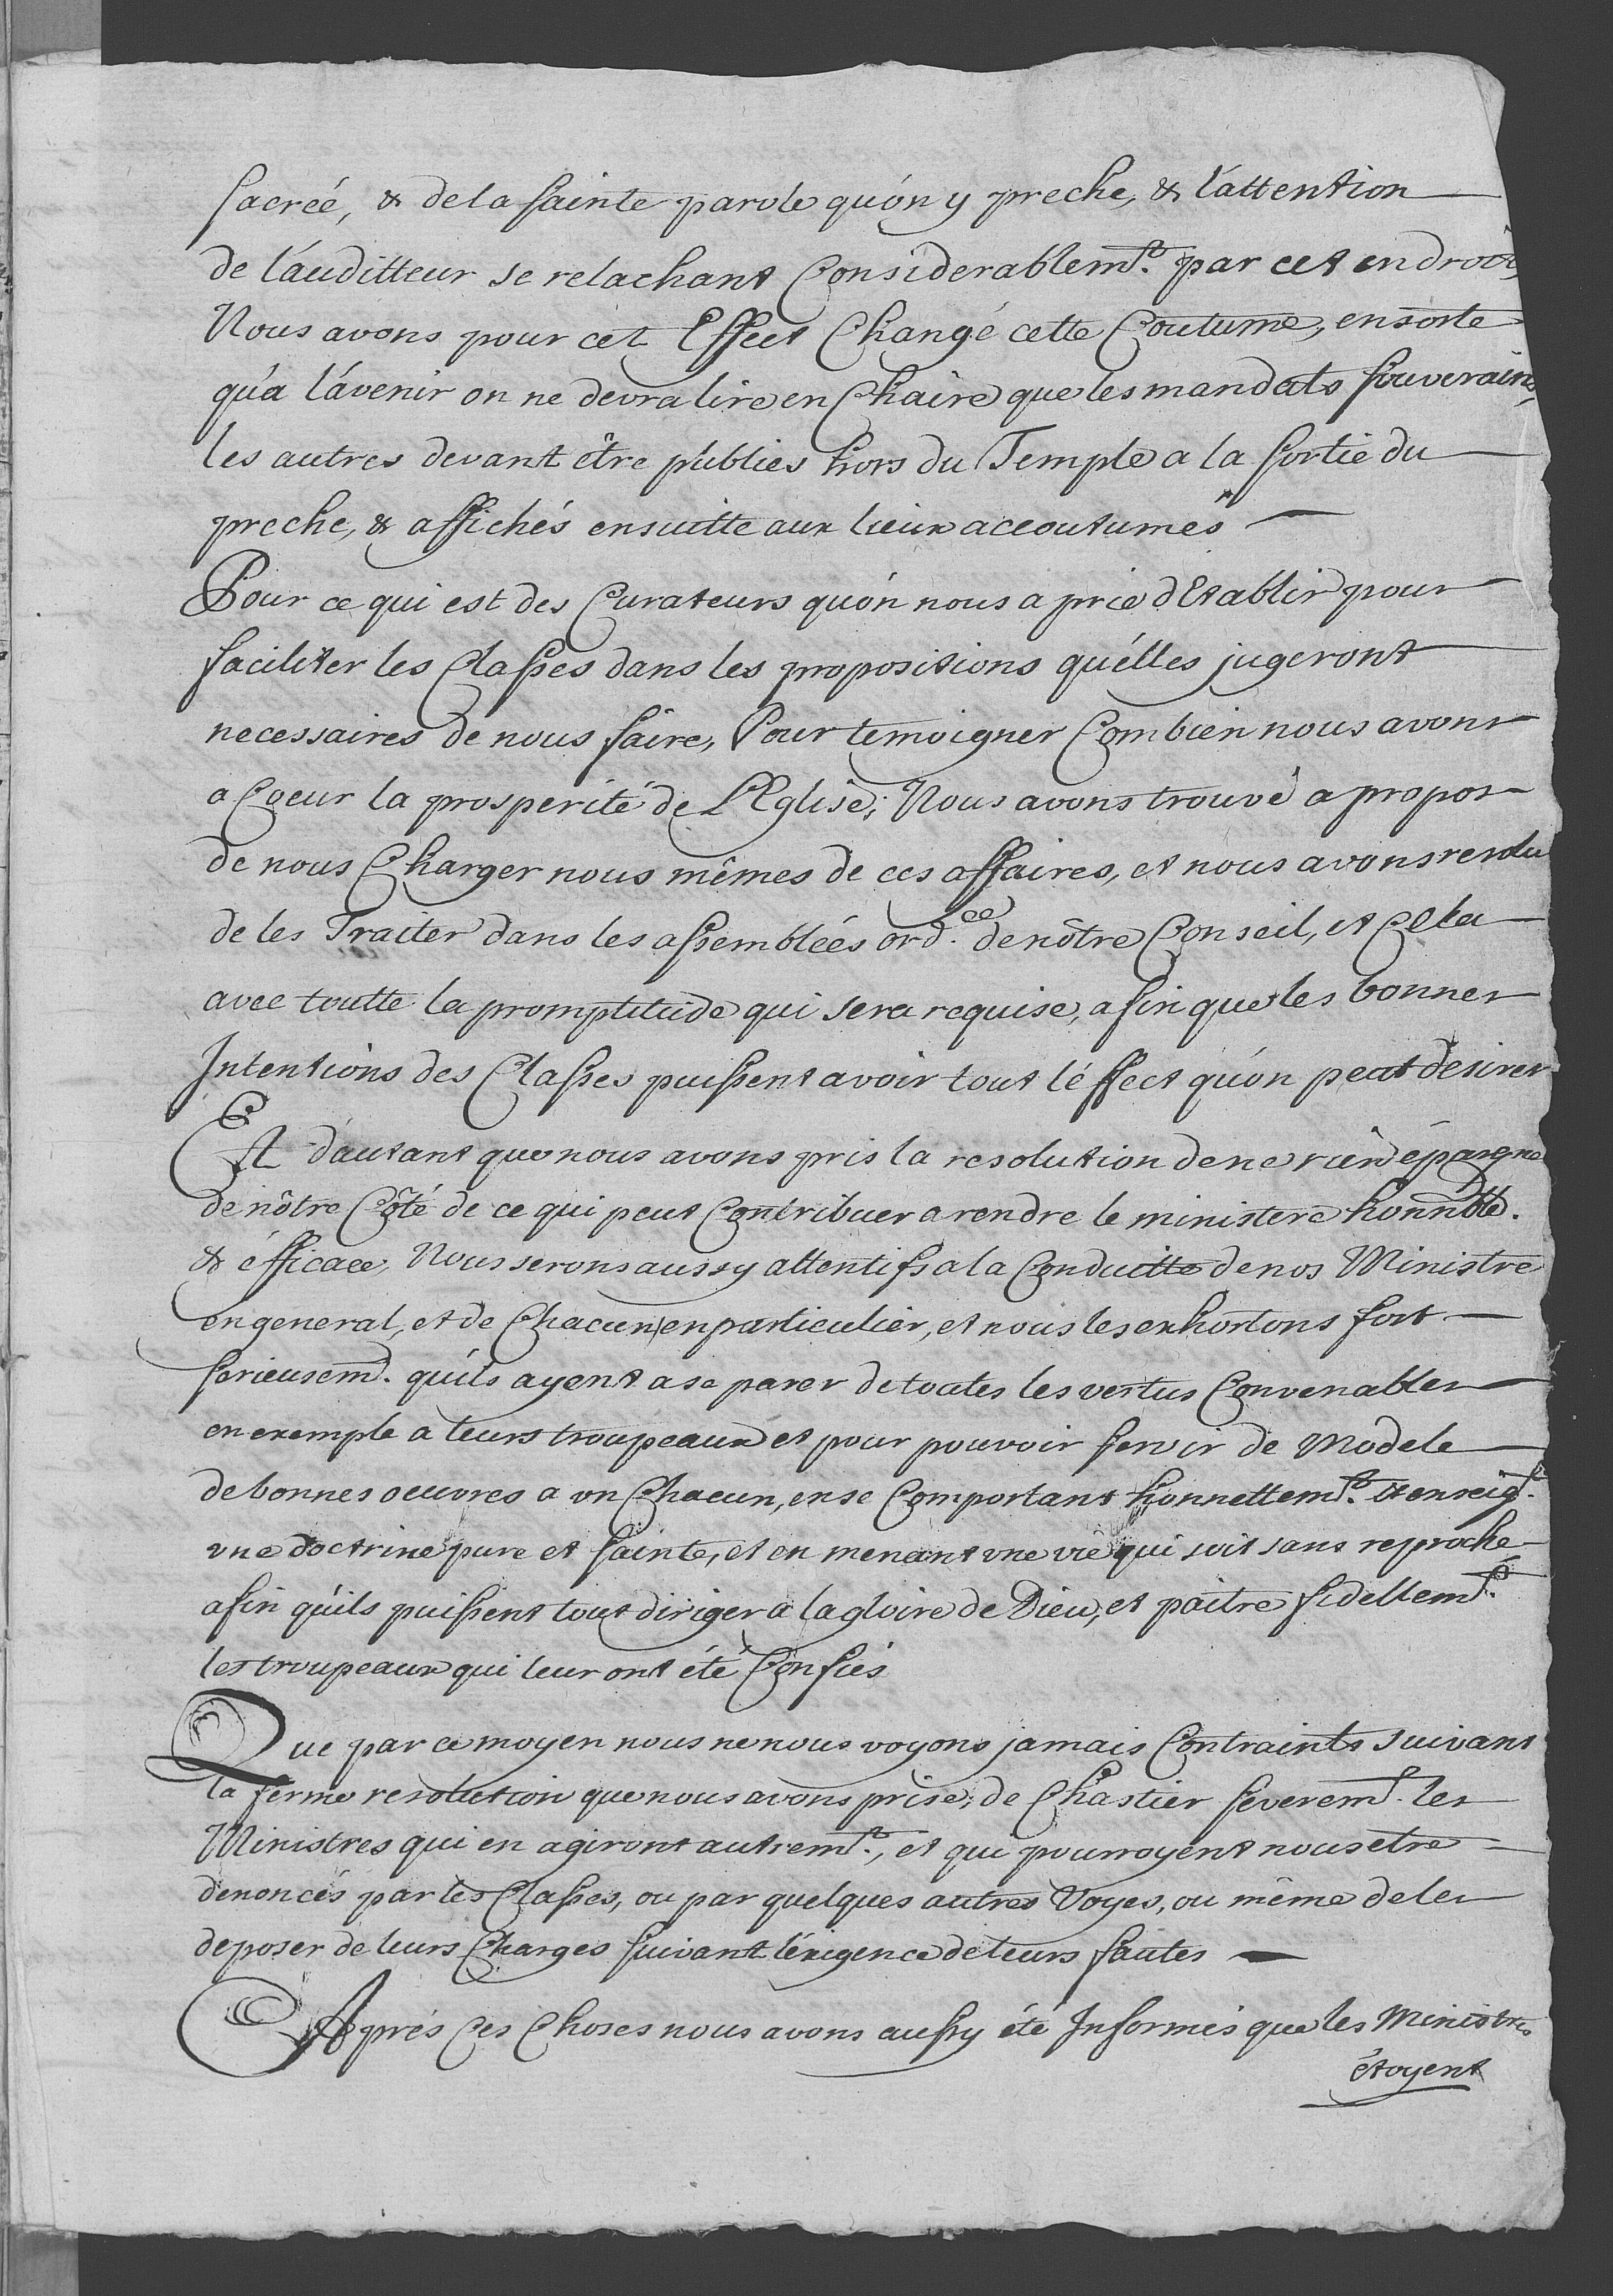 sacréé, & de la sainte parole qu'on y preche, & l'attention
de l'auditteur se relachant Considerablem.t par cet endroit,
Nous avons pour cet Effect Changé cette Coutume, ensorte
qu'a l'avenir on ne devra lire en Chaire que les mandats souverains,
les autres devant être publiés hors du Temple a la sortie du
preche, & affichés ensuitte aux lieux accoutumés
Pour ce qui est des Curateurs qu'on nous a prié d'Etablir pour
faciliter les Classes dans les propositions qu'élles jugeront
necessaires de nous faire, Pour temoigner Combien nous avons
a Coeur la prosperité de L'Eglise; Nous avons trouvé a propos
de nous Charger nous mêmes de ces affaires, et nous avons resolu
de les Traiter dans les assembléés ord.ce de nôtre Conseil, et Cela
avec toutte la promptitude qui sera requise, afin que les bonnes
Intentions des Classes puissent avoir tout l'éffect qu'on peut desirer
Et d'autant que nous avons pris la resolution de ne rien épargne
de nôtre Côté de ce qui peut Contribuer a rendre le ministere honnble.
& éfficace, Nous serons aussy attentifs a la Conduitte de nos Ministre
en general, et de Chacun en particulier, et nous les exhortons fort
serieusemt. qu'ils ayent a se parer de toutes les vertus Convenables
en exemple a leurs troupeaux et pour pouvoir servir de Modele
de bonnes oeuvres a vn Chacun, en se Comportant honnettem.t et enseigt.
vne doctrine pure et sainte, et en menant vne vie qui soit sans reproche
afin qu'ils puissent tout diriger a la gloire de Dieu, et paitre fidellem.t
les troupeaux qui leur ont été Confiés
Que par ce moyen nous ne nous voyons jamais Contraints suivant
la ferme resolution que nous avons prise, de Chastier severemt. les
Ministres qui en agiront autrem.t, et qui pourroyent nous etre
denoncés par les Classes, ou par quelques autres Voyes, ou même de les
deposer de leurs Charges suivant l'éxigence de leurs fautes
Aprés Ces Choses nous avons aussy été Informés que les Ministres
étoyent